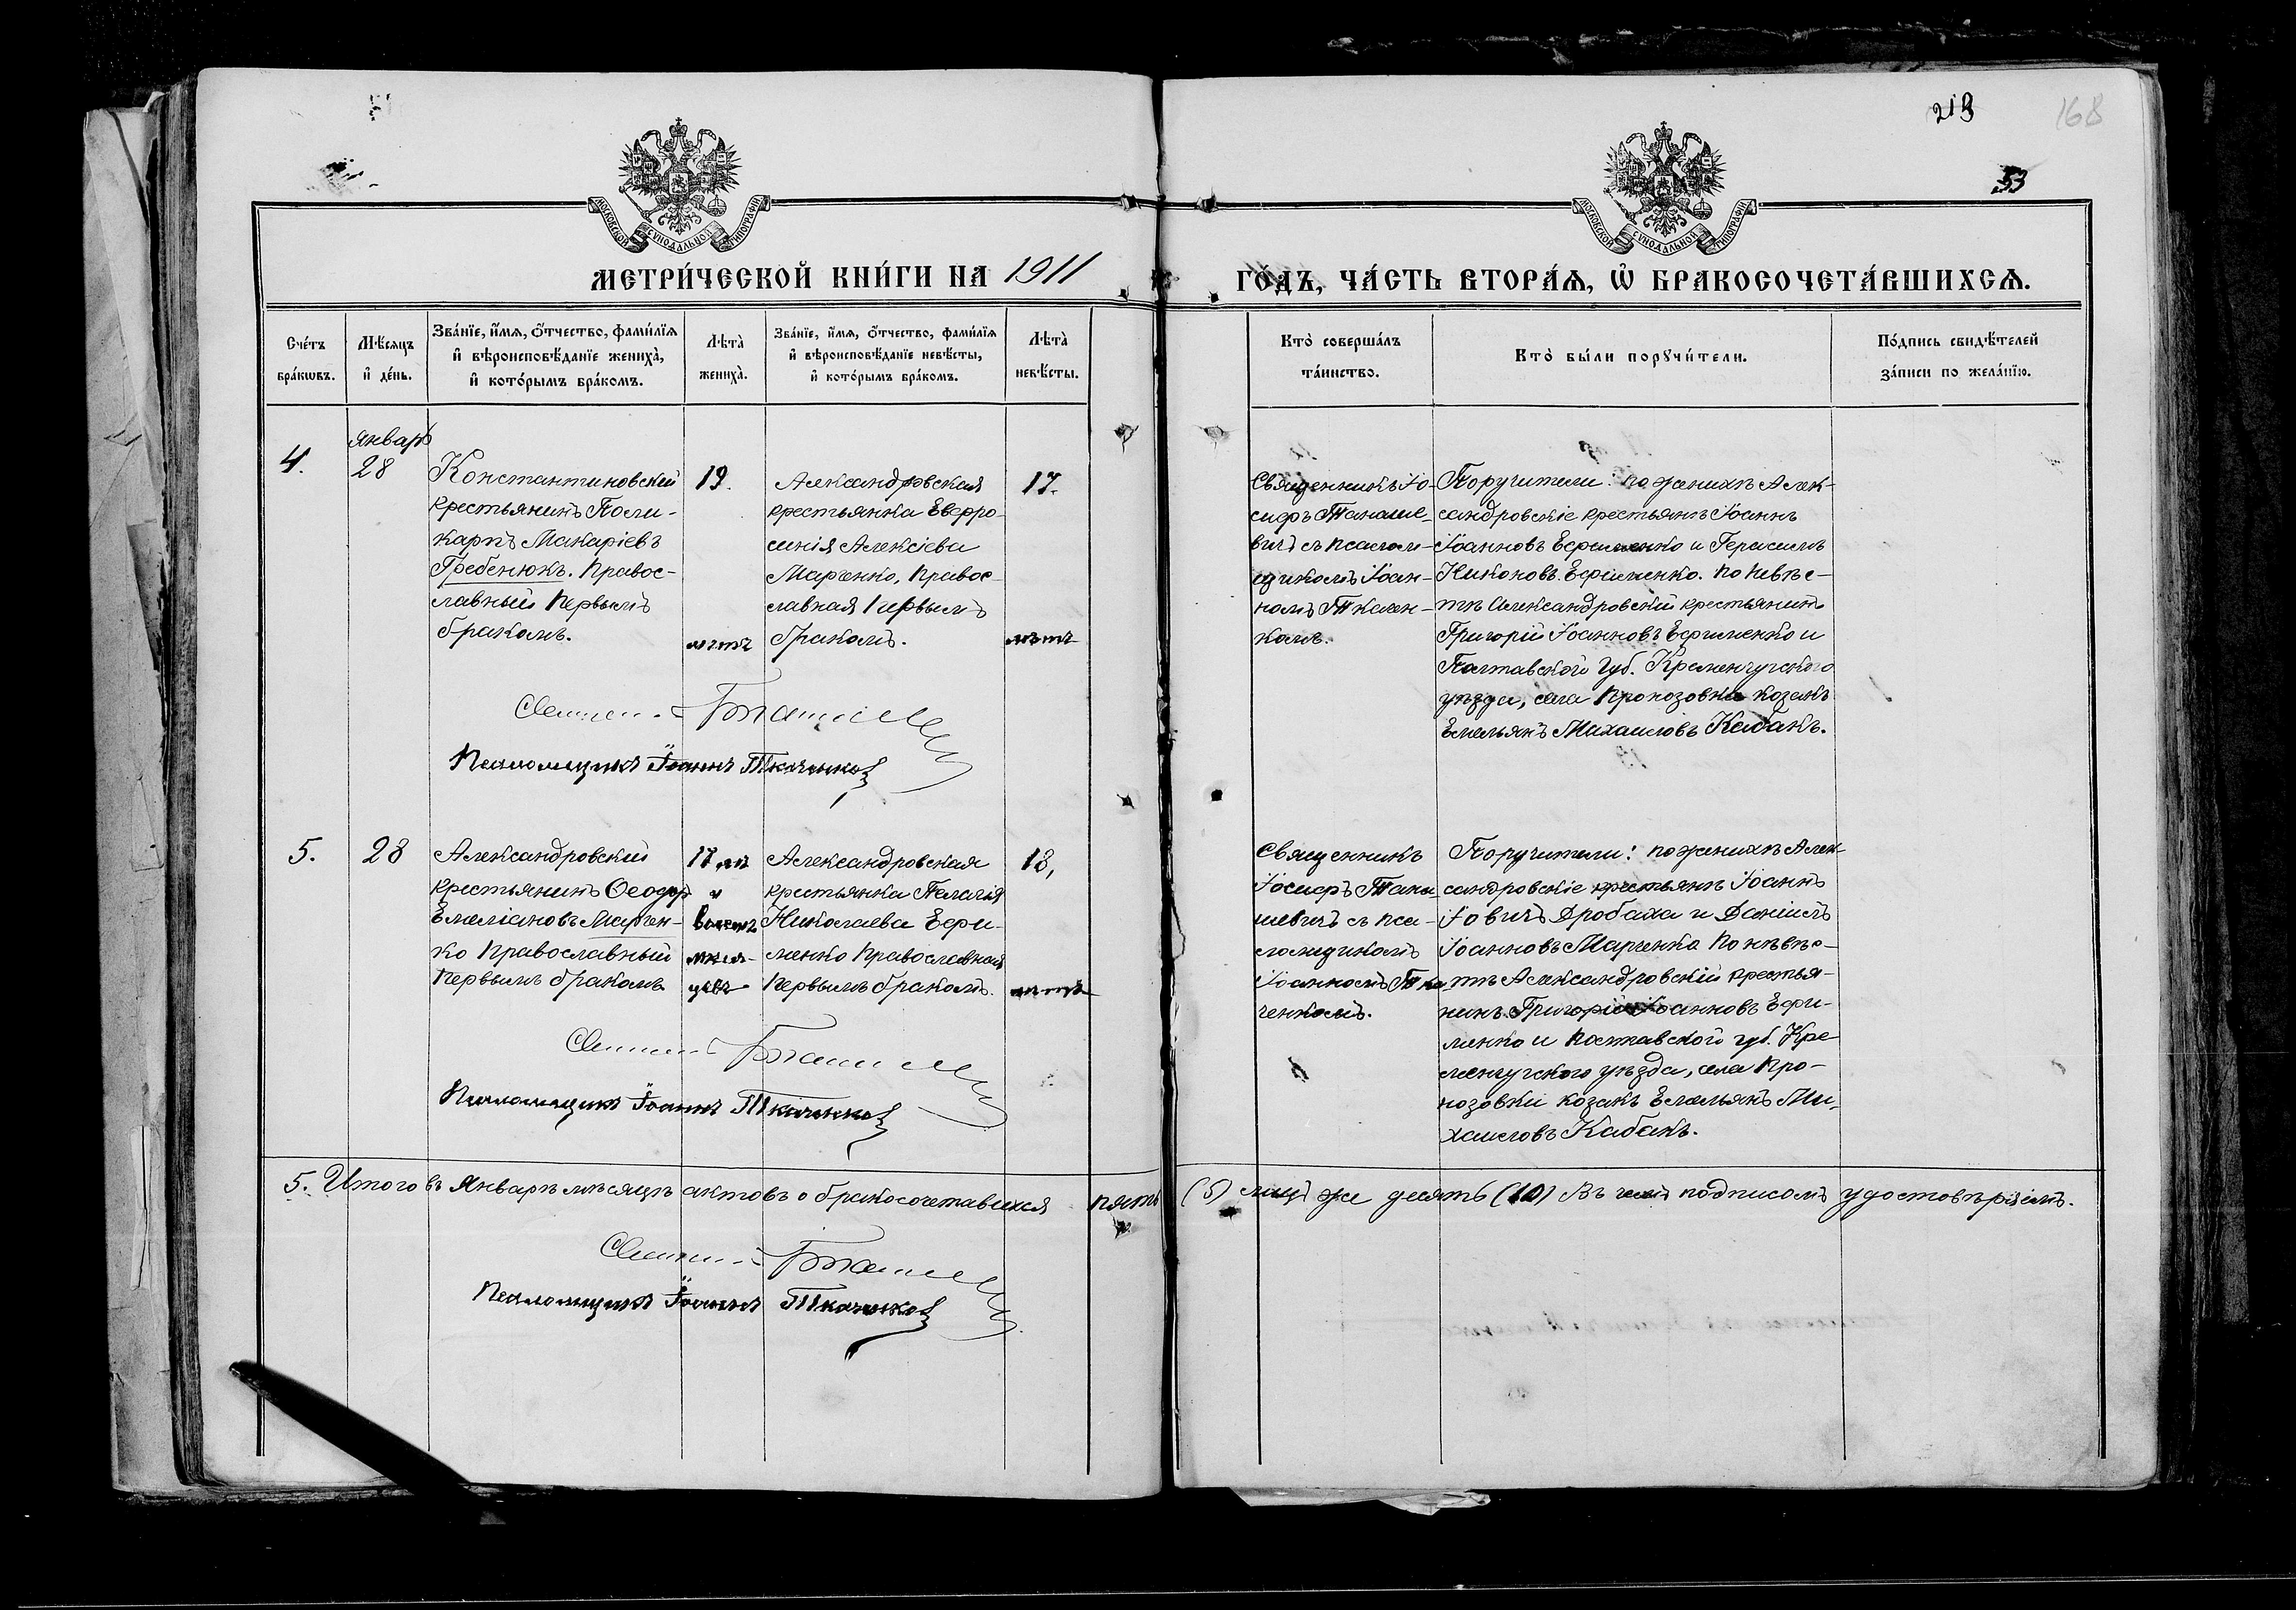 219
168
53
МОСКОВСКОЙ СѴНОДАЛЬНОЙ ТИПОГРАФІИ
МОСКОВСКОЙ СѴНОДАЛЬНОЙ ТИПОГРАФІИ
МЕТРИ́ЧЕСКОЙ КНИ́ГИ НА 1911
ГО́ДЪ, ЧА́СТЬ ВТОРА́Ѧ, Ѡ҆ БРАКОСОЧЕТА́ВШИХСѦ.
Сче́тъ
бра́кѡвъ.
Мѣ́сяцъ
и҆ де́нь.
Зва́нїе, и҆́мѧ, ѻ҆́тчество, фами́лїѧ
и҆ вѣроисповѣ́данїе жениха̀,
и҆ кото́рымъ бра́комъ.
Лѣта̀
жениха̀.
Зва́нїе, и҆́мѧ, ѻ҆́тчество, фами́лїѧ
и҆ вѣроисповѣ́данїе невѣ́сты,
и҆ кото́рымъ бра́комъ.
Лѣта̀
невѣ́сты.
Кто̀ соверша́лъ
та́инство.
Кто̀ бы́ли порꙋчи́тели.
По́дпись свидѣ́телей
за́писи по жела́нїю.
4.
Январь
28
Константиновскій
крестьянинъ Поли-
карпъ Макаріевъ
Гребенюкъ. Правос-
лавный Первымъ
бракомъ.
19.
лѣтъ
Александровская
крестьянка Евфро-
синія Алексіева
Марченко, Правос-
лавная Первымъ
бракомъ.
17.
лѣтъ
Священникъ Іо-
сифъ Танаше-
вичъ съ псалом-
щикомъ Іоан-
номъ Ткачен-
комъ.
Поручители: по женихѣ Алек-
сандровскіе крестьянѣ Іоаннъ
Іоанновъ Ефименко и Герасимъ
Никоновъ Ефименко. по невѣс-
тѣ Александровскій крестьянинъ
Григорій Іоанновъ Ефименко и
Полтавской губ. Кременчугского
уѣзда, села Пронозовки козакъ
Емельянъ Михаиловъ Кабакъ.
Псаломщикъ Іоаннъ Ткаченко
5.
28
Александровскій
крестьянинъ Ѳеодоръ
Емеліановъ Марчен-
ко Православный
Первымъ бракомъ
17 лѣ
и
восемь
мѣся-
цевъ
Александровская
крестьянка Пелагія
Николаева Ефи-
менко Православная
Первымъ бракомъ.
18,
лѣтъ
Священникъ
Іосифъ Тана
шевичъ съ пса-
ломщикомъ
Іоанномъ Тка
ченкомъ.
Поручители: по женихѣ Алек-
сандровскіе крестьянѣ Іоаннъ
Іовичъ Дробаха и Даніилъ
Іоанновъ Марченко по невѣс-
тѣ Александровскій крестья-
нинъ Григорій Іоанновъ Ефи-
менко и Полтавской губ. Кре
менчугского уѣзда, села Про-
нозовки козакъ Емельянъ Ми-
хаиловъ Кабакъ.
Псаломщикъ Іоаннъ Ткаченко
5. Итого въ Январѣ мѣсяцѣ актовъ о бракосочетавшихся пять (5) лицъ же десять (10) Въ чемъ подписомъ удостовѣряемъ.
Псаломщикъ Іоаннъ Ткаченко